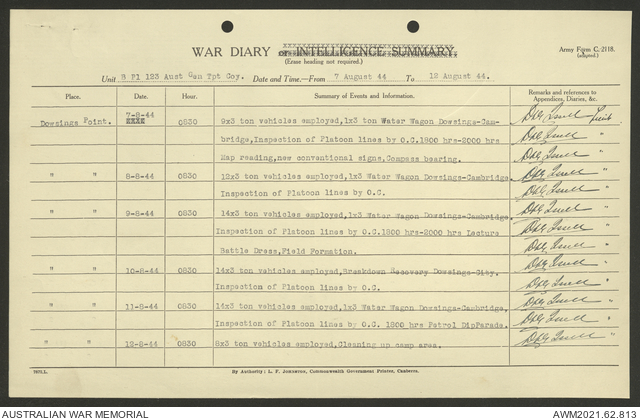 WAR DIARY or INTELLIGENCE SUMMARY
(Erase heading not required).
Army Form C.2118.
(adapted.)
Unit B Pl 123 Aust Gen Tpt Coy. Date and Time.—From 7 August 44 To 12 August 44.
Place. Date. Hour. Summary of Events and Information. Remarks and references to Appendices, Diaries, &c.
Dowsings Point. 7-8-44 0830 9x3 ton vehicles employed,1x3 ton Water Wagon Dowsings-Cam-
bridge,Inspection of Platoon lines by O.C.1800 hrs-2000 hrs
Map reading,new conventional signs,Compass bearing.
" " 8-8-44 0830 12x3 ton vehicles employed,1x3 Water Wagon Dowsings-Cambridge. "
Inspection of Platoon lines by O.C. "
" " 9-8-44 0830 14x3 ton vehicles employed,1x3 Water Wagon Dowsings-Cambridge. "
Inspection of Platoon lines by O.C.1800 hrs-2000 hrs Lecture "
Battle Dress,Field Formation. "
" " 10-8-44 0830 14x3 ton vehicles employed,Breakdown Recovery Dowsings-City. "
Inspection of Platoon lines by O.C. "
" " 11-8-44 0830 14x3 ton vehicles employed,1x3 Water Wagon Dowsings-Cambridge, "
Inspection of Platoon lines by O.C. 1800 hrs Patrol DipParade. "
" " 12-8-44 0830 8x3 ton vehicles employed,Cleaning up camp area. "
By Authority: L. F. Johnston, Commonwealth Government Printer, Canberra.
AUSTRALIAN WAR MEMORIAL AWM2021.62.813